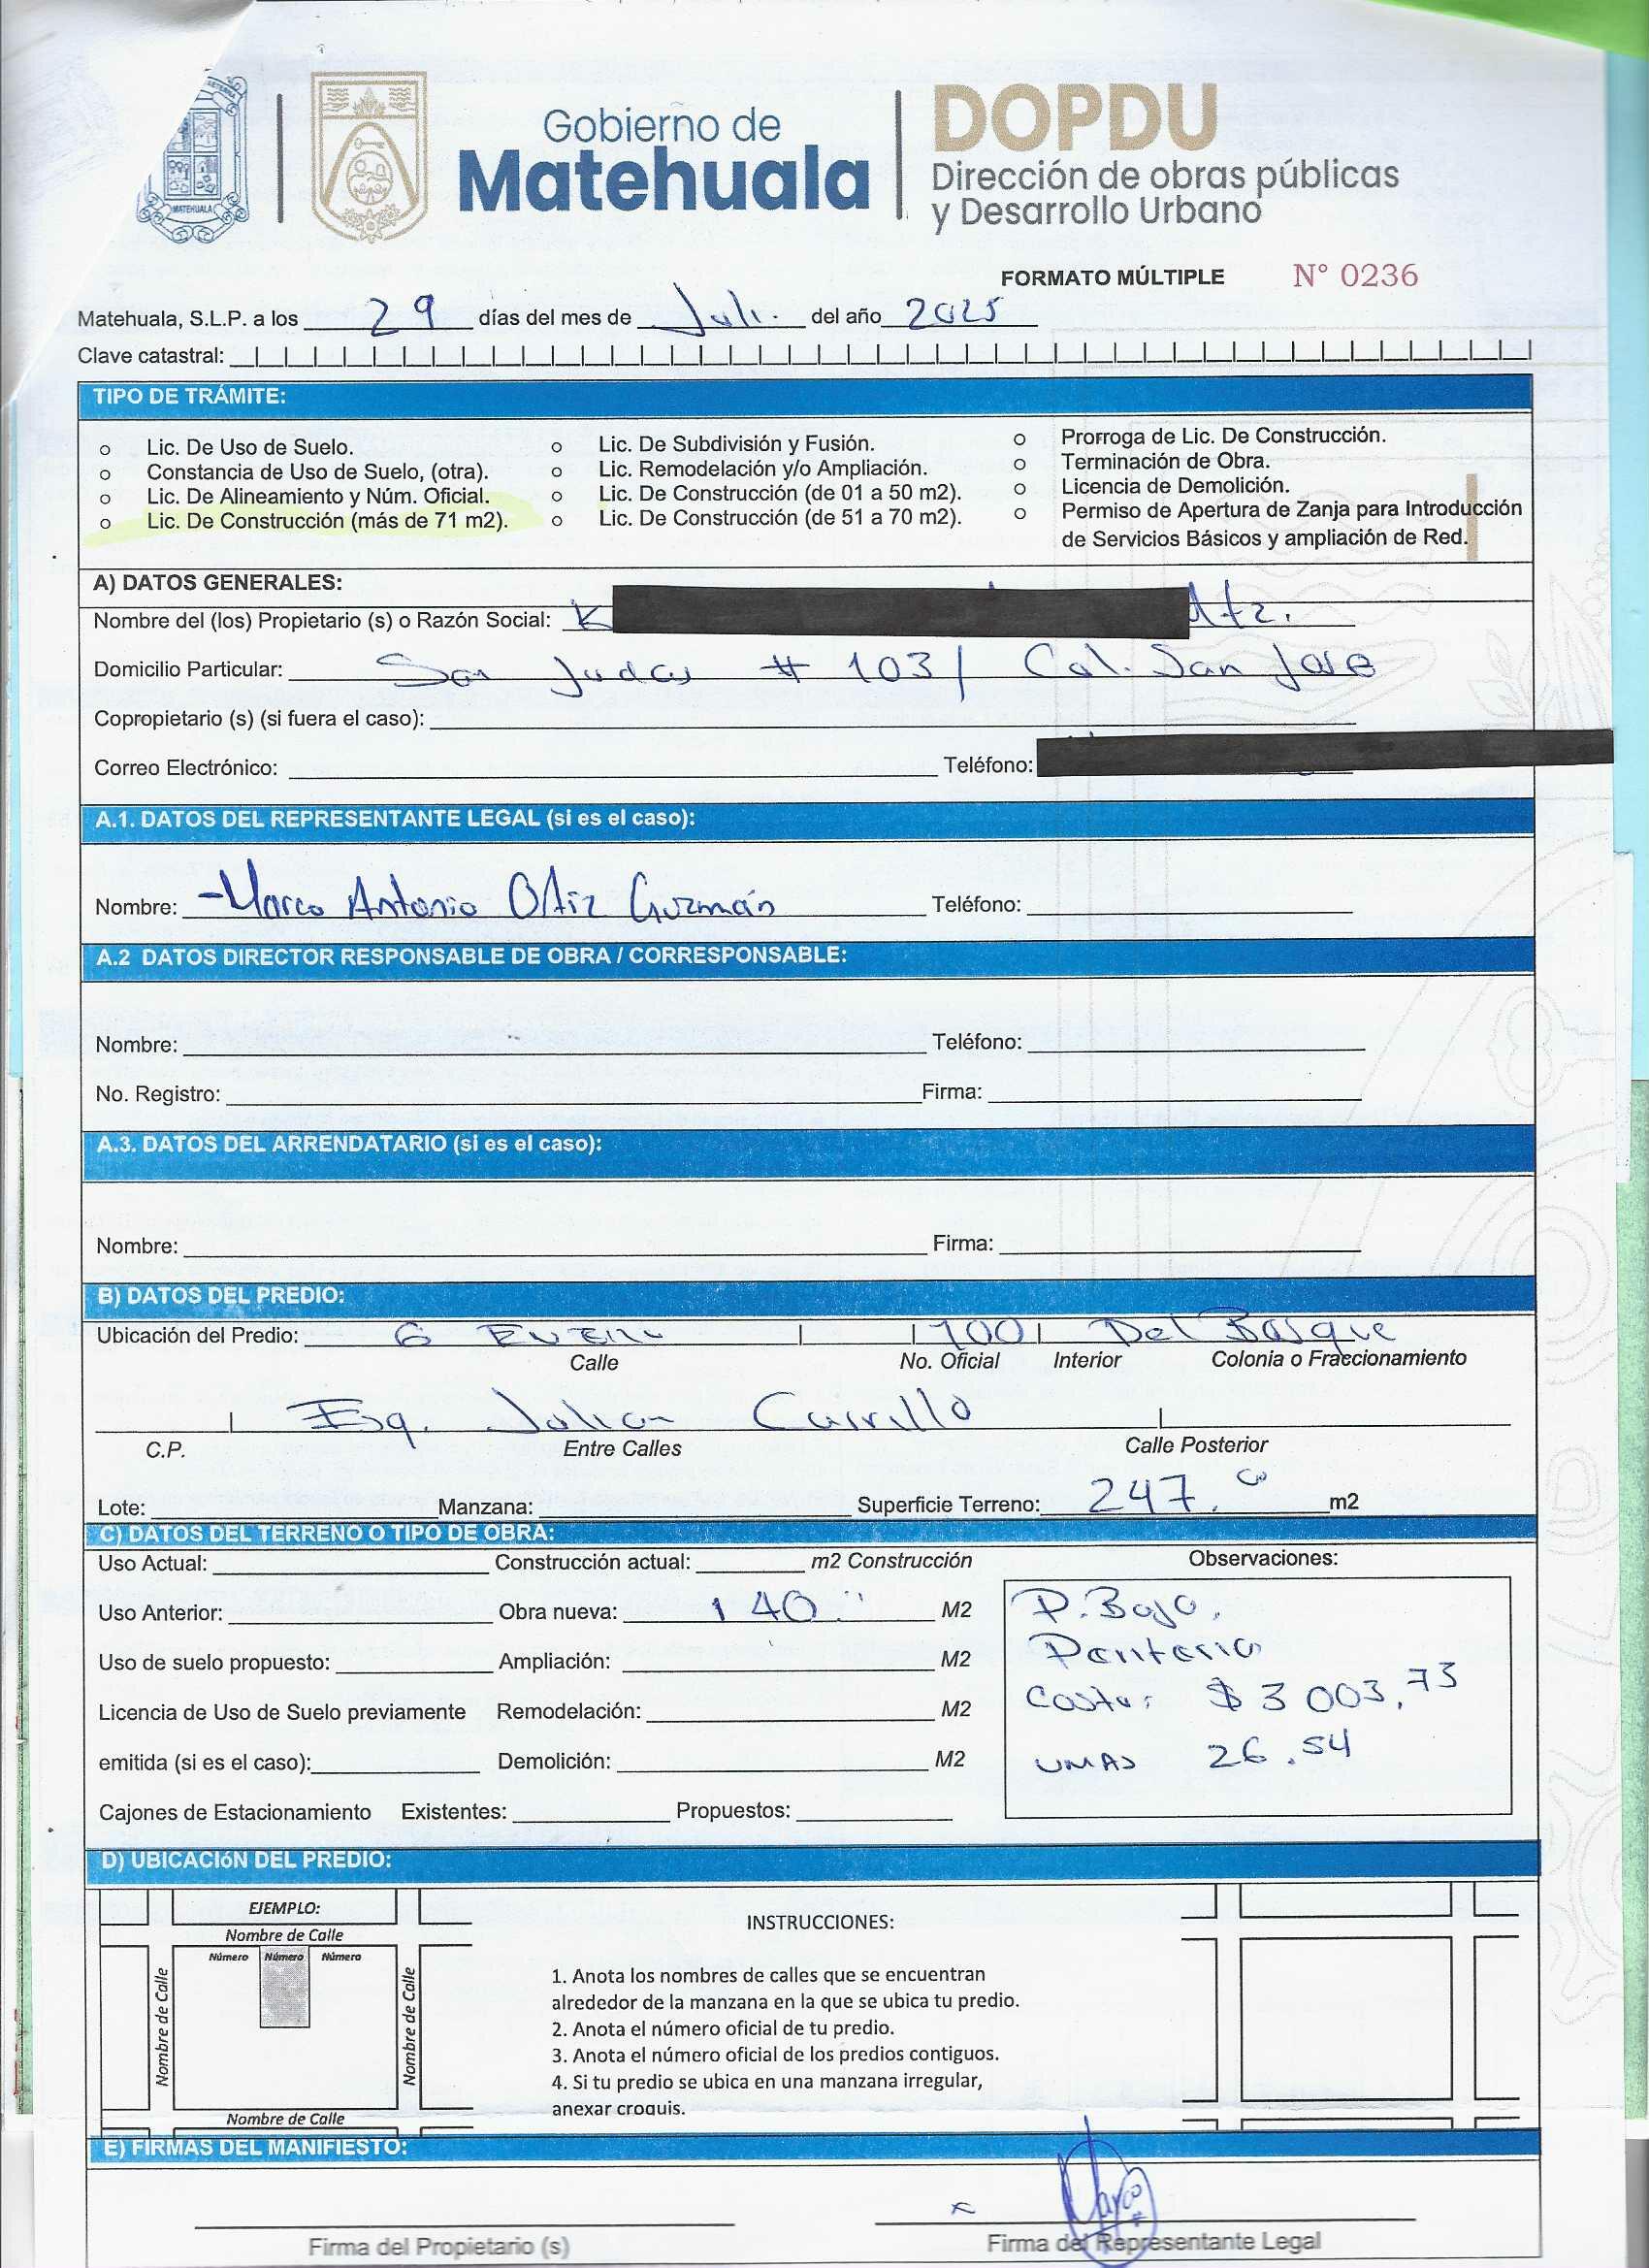 MATEHUALA
Gobierno de
Matehuala
DOPDU
Dirección de obras públicas
y Desarrollo Urbano
FORMATO MÚLTIPLE N° 0236
Matehuala, S.L.P. a los 29 días del mes de Juli. del año 2025
Clave catastral:
TIPO DE TRÁMITE:
Lic. De Uso de Suelo.
Constancia de Uso de Suelo, (otra).
Lic. De Alineamiento y Núm. Oficial.
Lic. De Construcción (más de 71 m2).
Lic. De Subdivisión y Fusión.
Lic. Remodelación y/o Ampliación.
Lic. De Construcción (de 01 a 50 m2).
Lic. De Construcción (de 51 a 70 m2).
Prorroga de Lic. De Construcción.
Terminación de Obra.
Licencia de Demolición.
Permiso de Apertura de Zanja para Introducción
de Servicios Básicos y ampliación de Red.
A) DATOS GENERALES:
Nombre del (los) Propietario (s) o Razón Social: K Mtz.
Domicilio Particular: San Judas # 103 / Col. San Jose
Copropietario (s) (si fuera el caso):
Correo Electrónico: Teléfono:
A.1. DATOS DEL REPRESENTANTE LEGAL (si es el caso):
Nombre: Marco Antonio Ortiz Guzmán Teléfono:
A.2 DATOS DIRECTOR RESPONSABLE DE OBRA / CORRESPONSABLE:
Nombre: Teléfono:
No. Registro: Firma:
A.3. DATOS DEL ARRENDATARIO (si es el caso):
Nombre: Firma:
B) DATOS DEL PREDIO:
Ubicación del Predio: 6 Enero 1001 Del Bosque
Calle No. Oficial Interior Colonia o Fraccionamiento
Esq. Julian Carrillo
C.P. Entre Calles Calle Posterior
Lote: Manzana: Superficie Terreno: 247.00 m2
C) DATOS DEL TERRENO O TIPO DE OBRA:
Uso Actual: Construcción actual: m2 Construcción Observaciones:
Uso Anterior: Obra nueva: 140 M2
Uso de suelo propuesto: Ampliación: M2
Licencia de Uso de Suelo previamente Remodelación: M2
emitida (si es el caso): Demolición: M2
Cajones de Estacionamiento Existentes: Propuestos:
P. Bajo,
Costo: $ 3 003,73
UMAS 26.54
D) UBICACIóN DEL PREDIO:
EJEMPLO:
Nombre de Calle
Número Número Número
Nombre de Calle
Nombre de Calle
Nombre de Calle
INSTRUCCIONES:
1. Anota los nombres de calles que se encuentran
alrededor de la manzana en la que se ubica tu predio.
2. Anota el número oficial de tu predio.
3. Anota el número oficial de los predios contiguos.
4. Si tu predio se ubica en una manzana irregular,
anexar croquis.
E) FIRMAS DEL MANIFIESTO:
x Marco
Firma del Propietario (s) Firma del Representante Legal